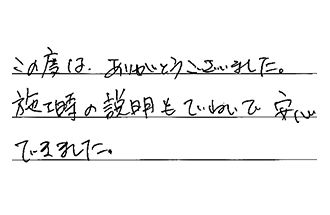 この度は、ありがとうございました。
施工時の説明もていねいで安心
できました。